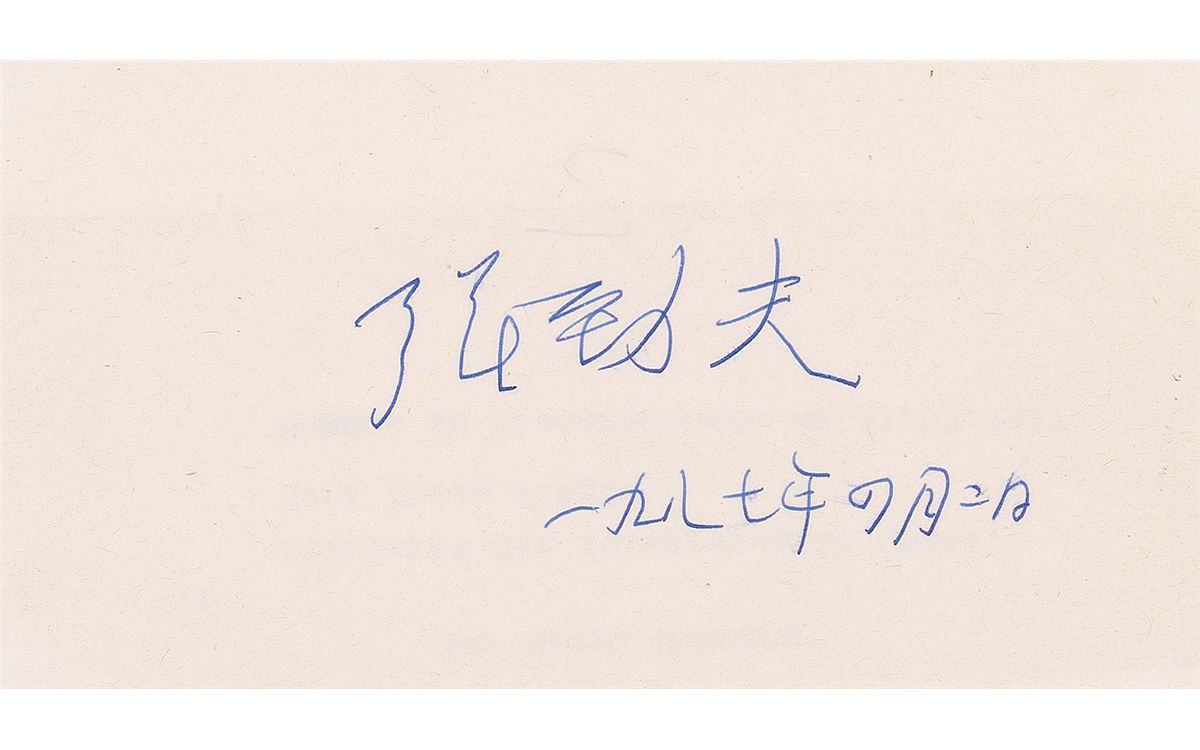 张劲夫
一九八七年四月二日